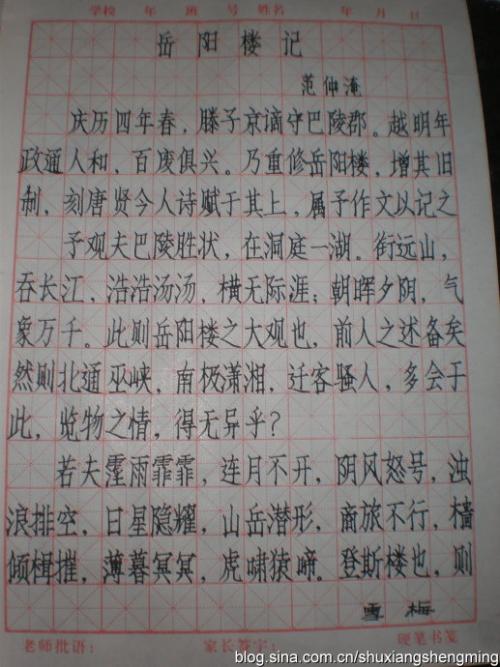 学校 年 班 号 姓名 年 月 日
岳阳楼记
范仲淹
庆历四年春，滕子京谪守巴陵郡。越明年
政通人和，百废俱兴。乃重修岳阳楼，增其旧
制，刻唐贤今人诗赋于其上，属予作文以记之
予观夫巴陵胜状，在洞庭一湖。衔远山，
吞长江，浩浩汤汤，横无际涯；朝晖夕阴，气
象万千。此则岳阳楼之大观也，前人之述备矣
然则北通巫峡，南极潇湘，迁客骚人，多会于
此，览物之情，得无异乎？
若夫霪雨霏霏，连月不开，阴风怒号，浊
浪排空，日星隐耀，山岳潜形，商旅不行，樯
倾楫摧，薄暮冥冥，虎啸猿啼。登斯楼也，则
雪梅
老师批语： 家长签字： 硬笔书笺
blog.sina.com.cn/shuxiangshengming